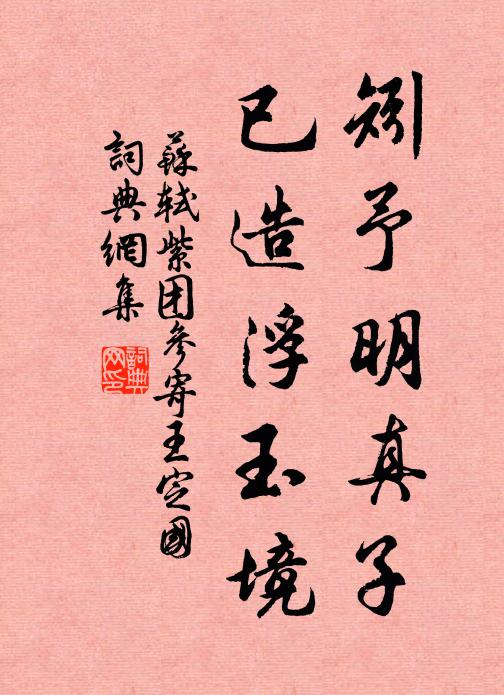 矧予明真子
已造浮玉境
蘇軾紫团參寄王定國
詞典網集
詞典网印